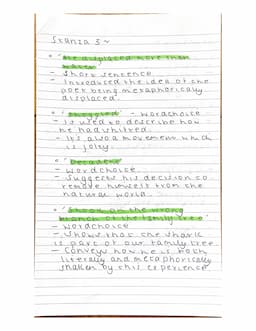 Stanza 3 ~
• "He displaced more than water"
- Short sentence
- Introduced the idea of the poet being metaphorically displaced.
• "Shuggled" - Wordchoice
- Is used to describe how he had
- It's also a movement which is jolty.
• "Decadent"
- Wordchoice
- Suggests his decision to remove himself from the natural world.
• "Shook on the wrong branch of the family tree"
- Wordchoice
- Shows that the shark is part of our family tree.
- Conveys how he is both literally and metaphorically shaken by this experience.